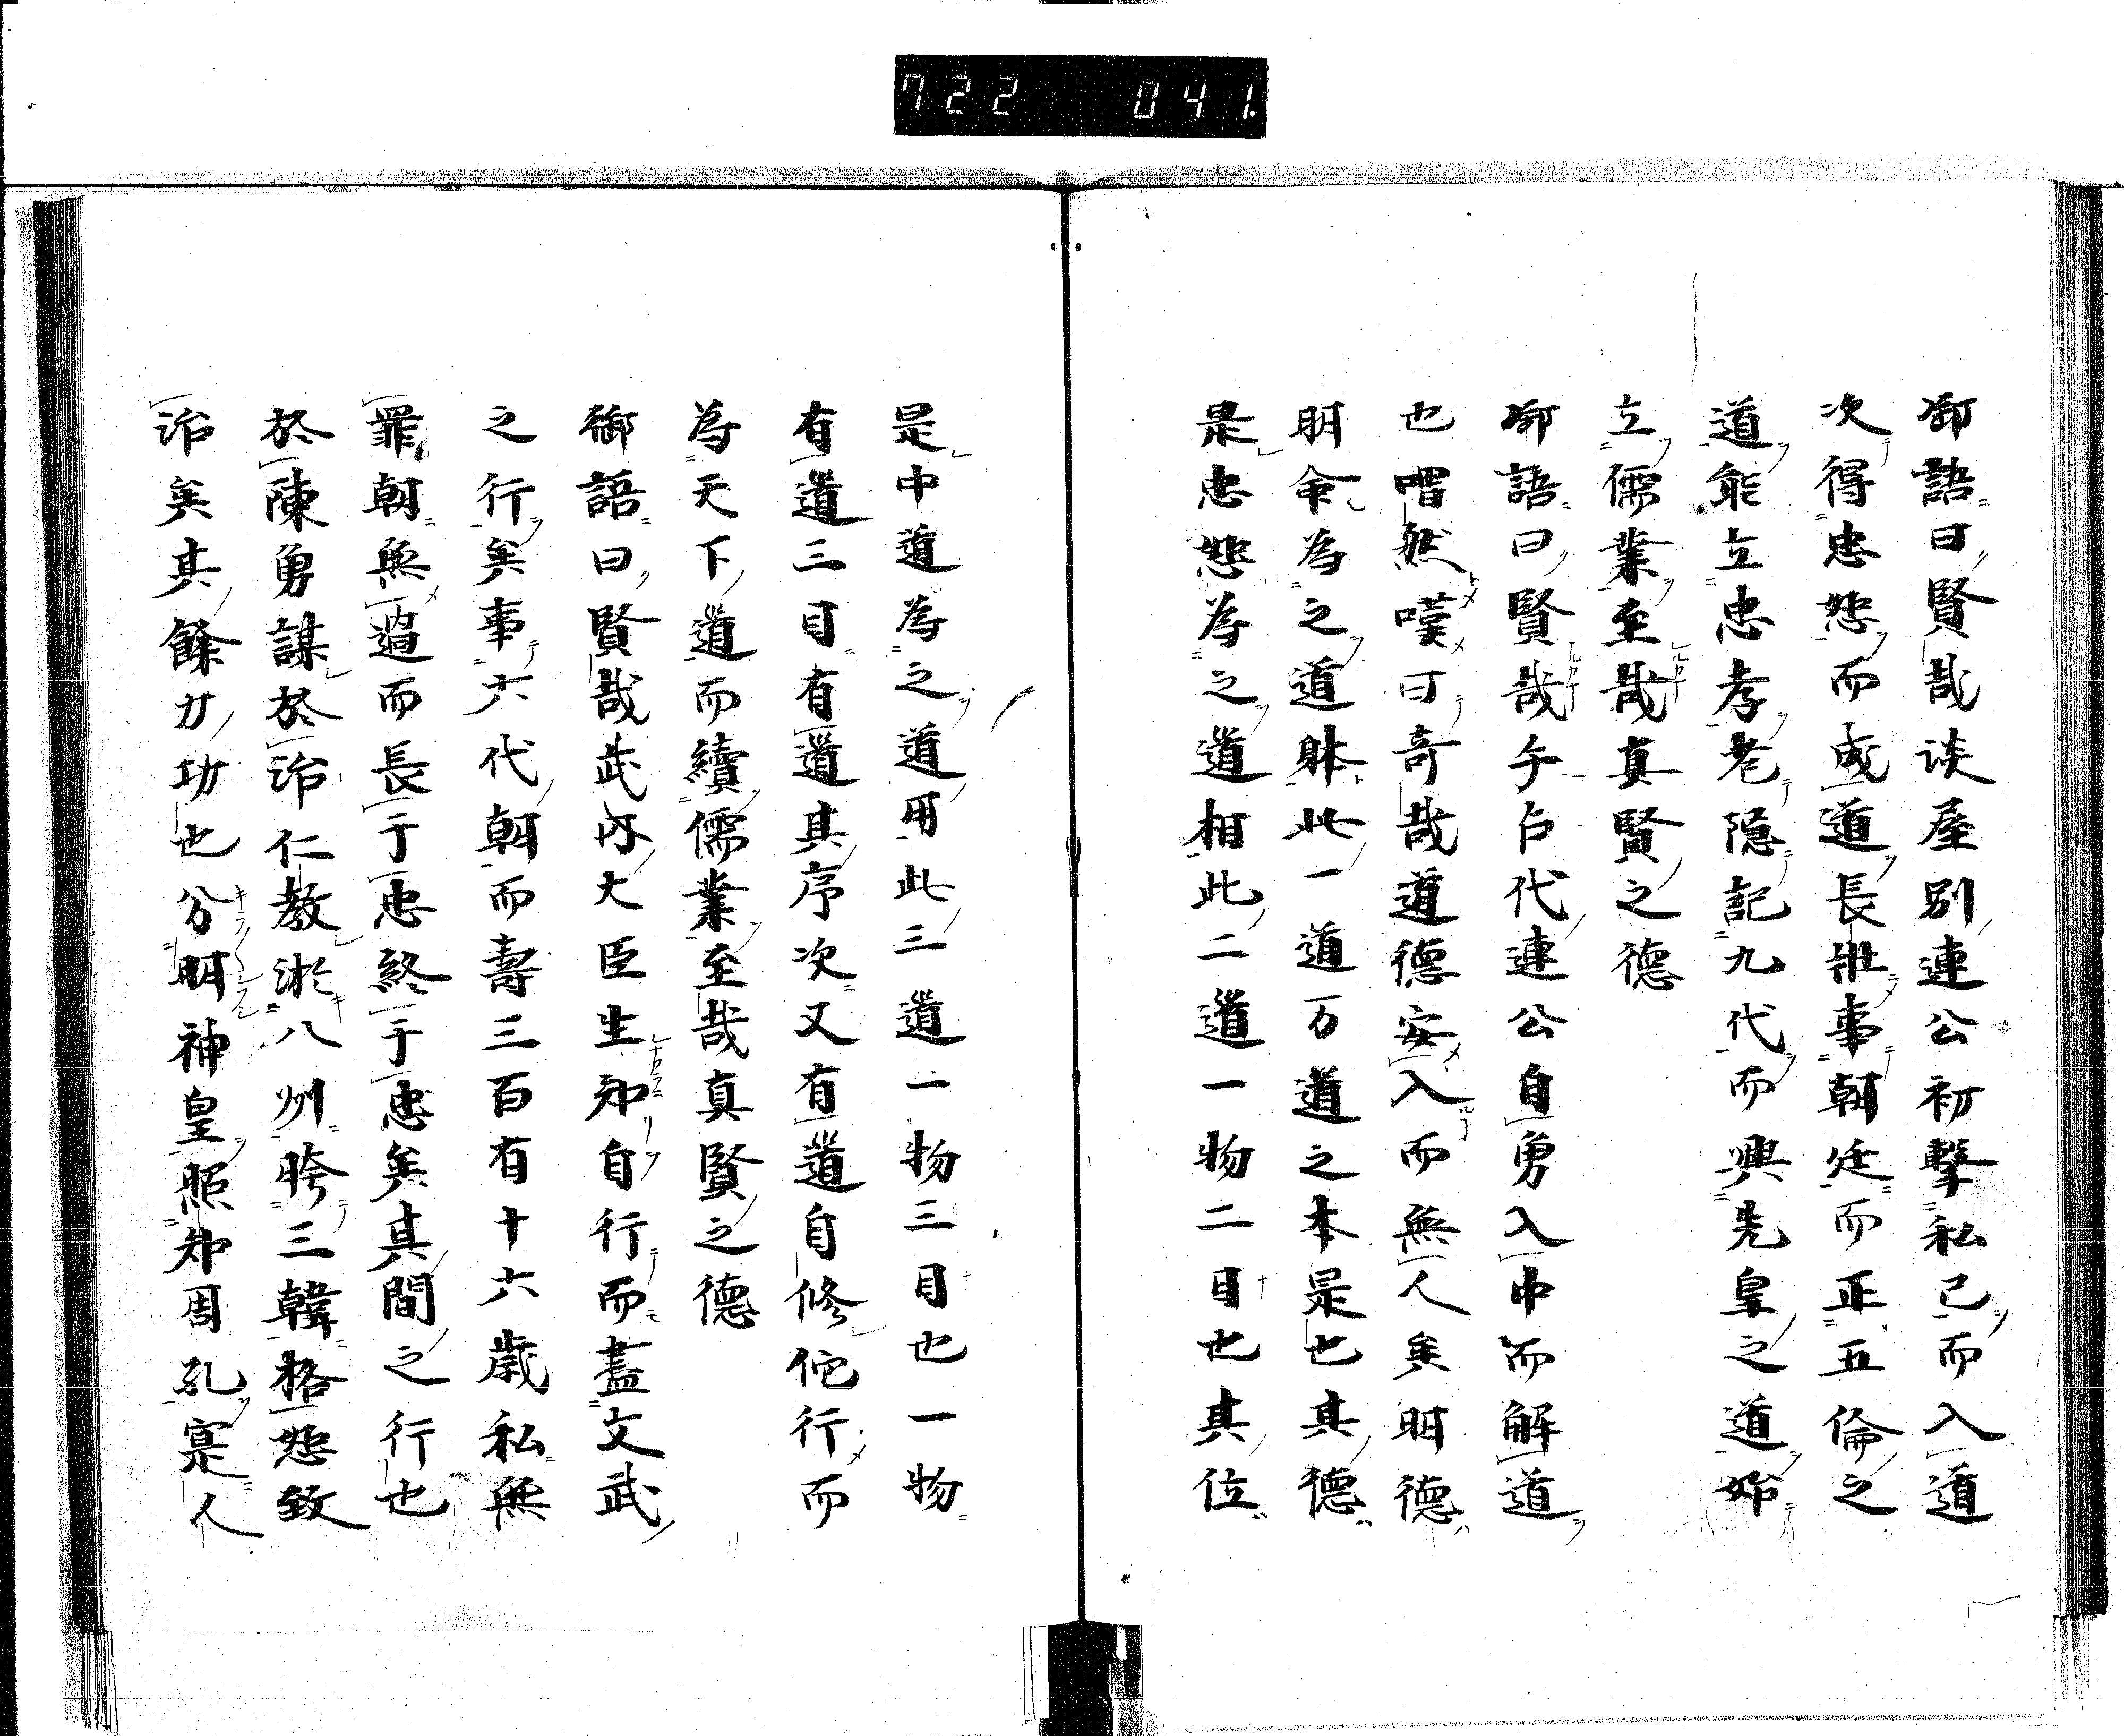 722 041
御語曰賢哉談屋別連公初撃私己而入道
次得忠恕而成道長壯事朝廷而正五倫之
道能立忠孝老隠記九代而興先皇之道始
立儒業至哉真賢之德
御語曰賢哉乍占代連公自勇入中而解道
也喟然嘆曰奇哉道德安入而無人矣明德
明命為之道躰此一道万道之本是也其德
是忠恕為之道相此二道一物二目也其位
是中道為之道用此三道一物三目也一物
有道三目有道其序次又有道自修佗行而
為天下道而續儒業至哉真賢之德
御語曰賢哉武内大臣生知自行而盡文武
之行矣事六代朝而壽三百有十六歲私無
罪朝無過而長于忠終于忠矣其間之行也
於陳勇謀於治仁教淤八州胯三韓格恕致
治矣其餘力功也分明神皇照知周孔寔人